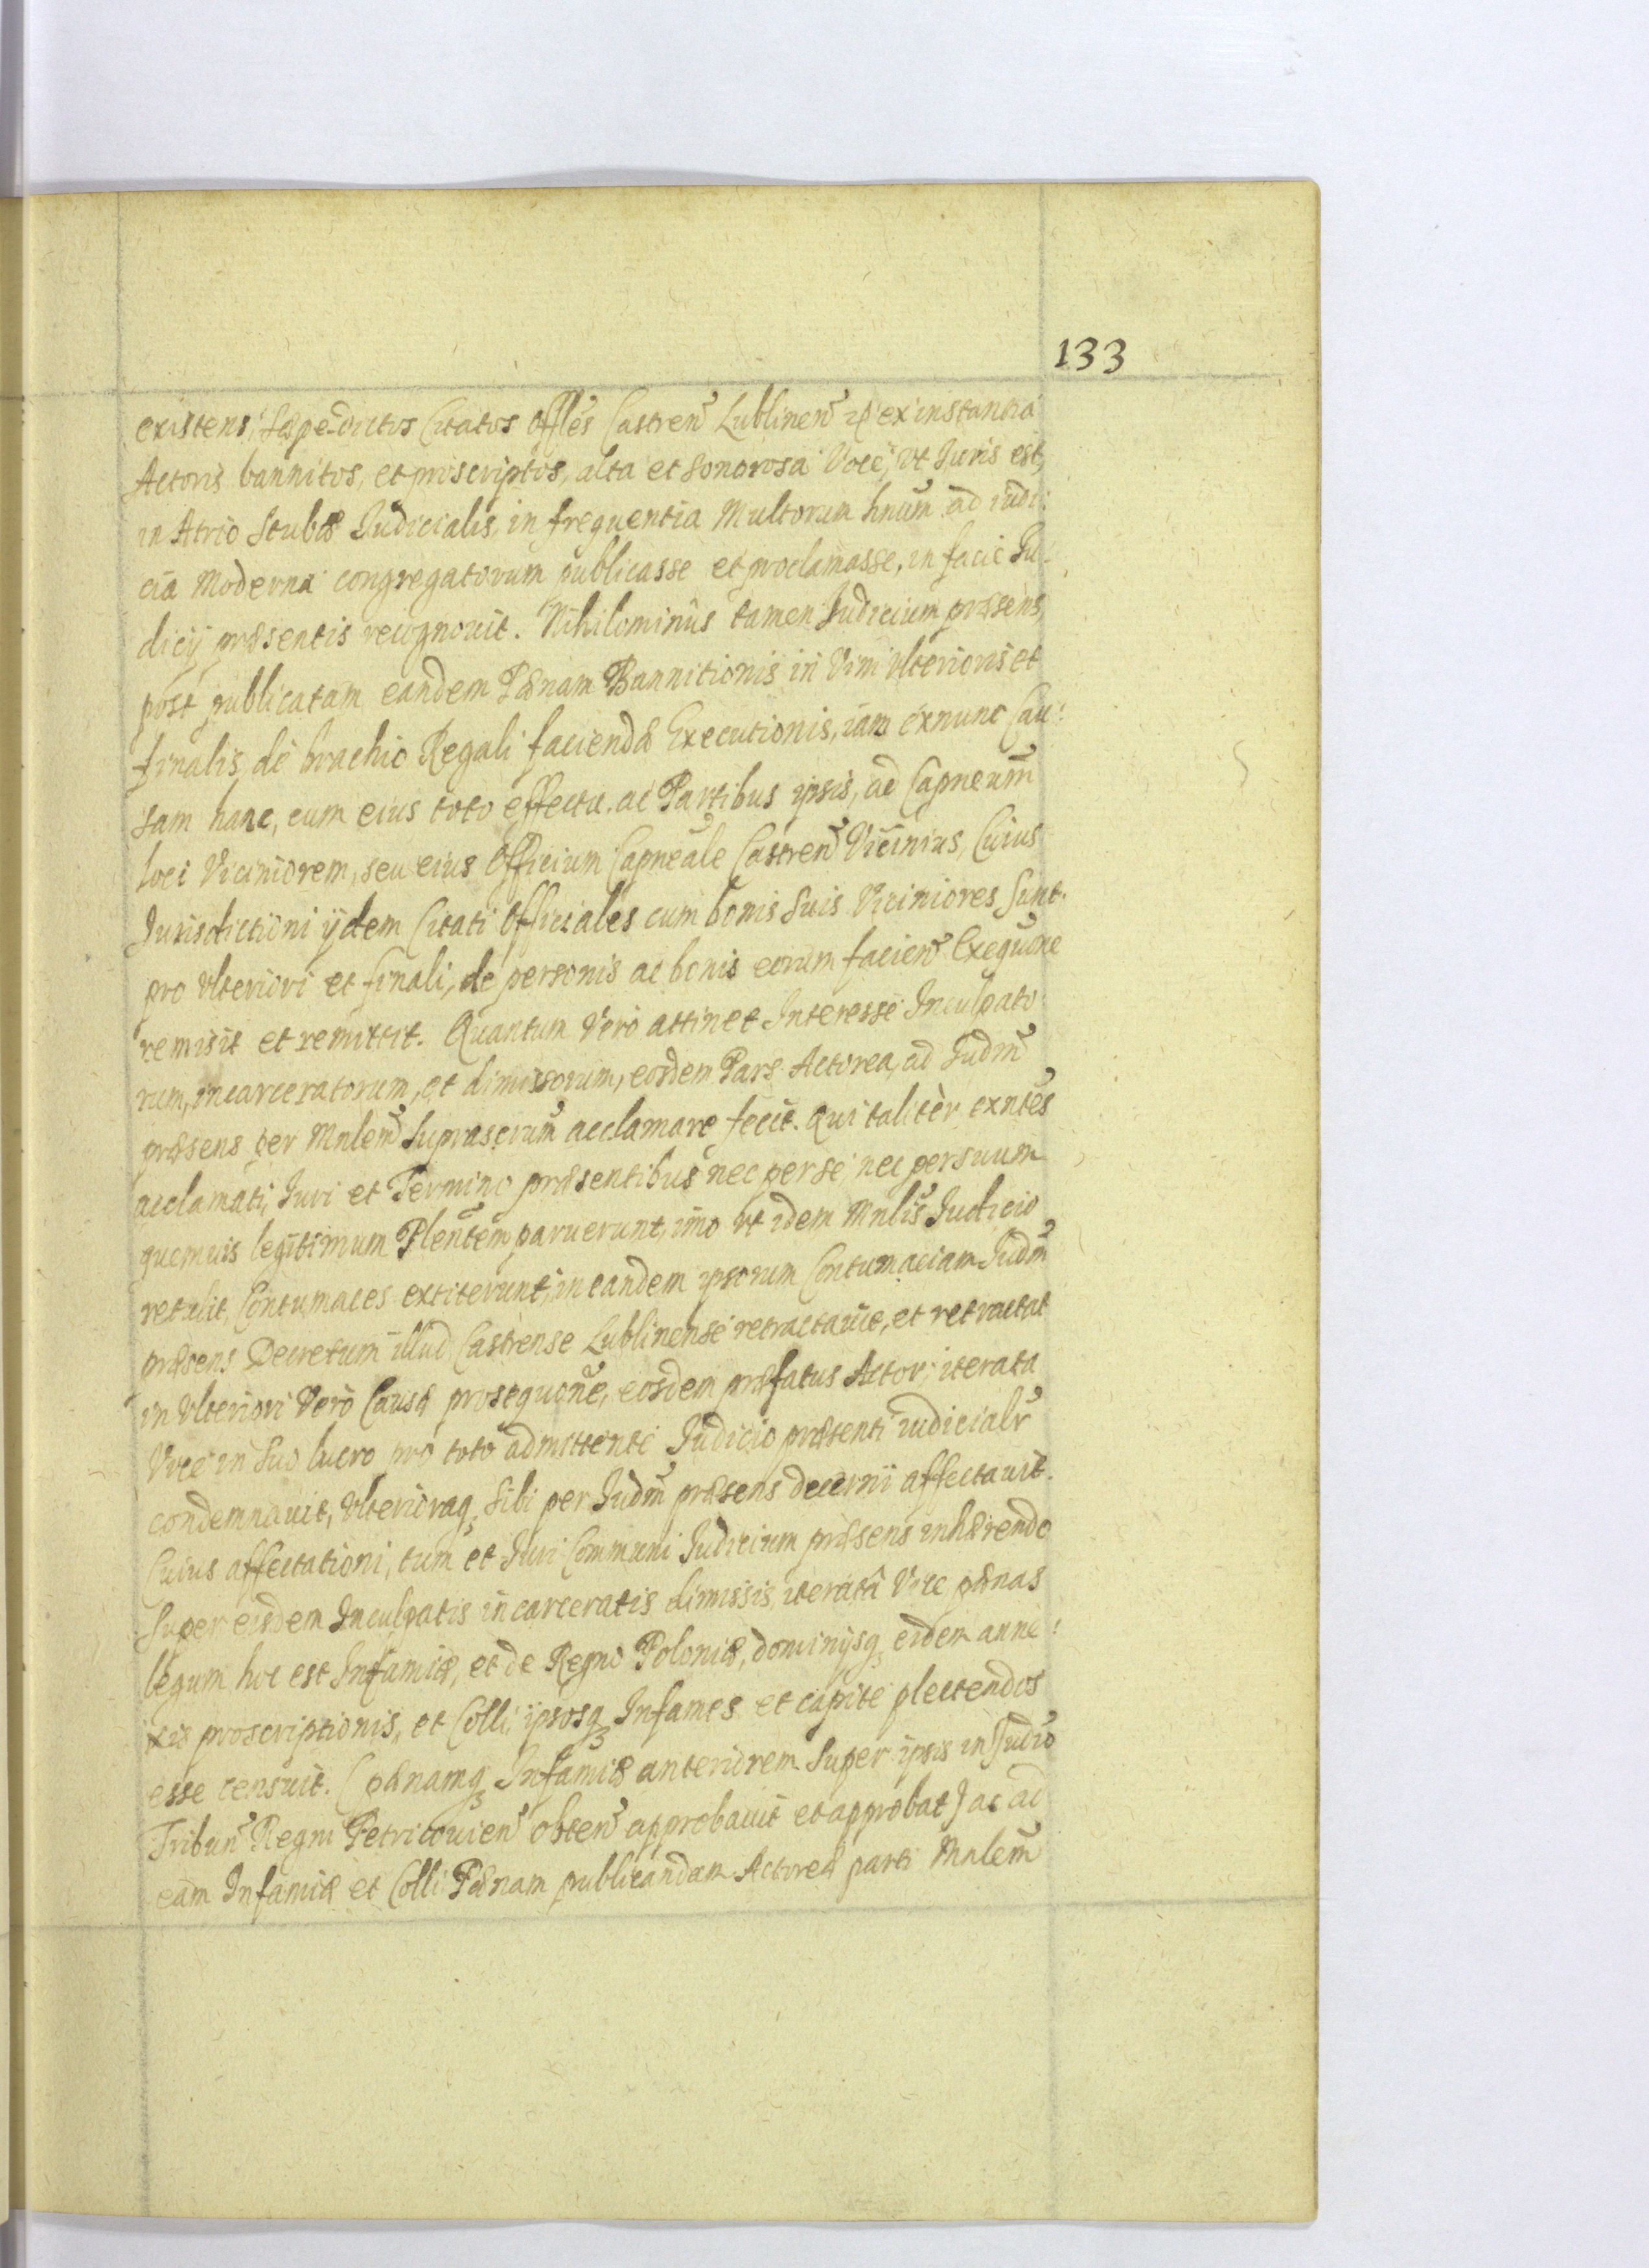 133
existens, sæpe-dictos Citatos Offles Castren Lublinen ex instantia
Actoris bannitos, et proscriptos, alta et sonorosa Voce, ut Iuris est,
in Atrio Stubæ Iudicialis, in frequentia Multorum hnum ad iudi:
cia Moderna congregatorum publicasse et proclamasse, in facie Iu:
dicij præsentis recognouit. Nihilominus tamen Iudicium præsens,
post publicatam eandem Pænam Bannitionis in Vim Vlterioris et
finalis, de brachio Regali faciendæ Executionis, iam exnunc Cau:
sam hanc, cum eius toto effectu. ac Partibus ipsis, ad Capneum
loci Viciniorem, seu eius Officium Capneale Castren Vicinius, Cuius
Iurisdictioni ijdem Citati Officiales cum bonis suis Viciniores sunt.
pro Vlteriori et finali, de personis ac bonis eorum facien Exequone
remisit et remittit. Quantum Vero attinet Interesse Inculpato
rum, incarceratorum, et dimissorum, eosdem Pars Actorea, ad Iudm
præsens per Mnlem suprascrum acclamare fecit. Qui taliter exntes
acclamati, Iuri et Termino præsentibus nec per se, nec per suum
quemuis legitimum Plentem paruerunt, imo ut idem Mnlis Iudicio
retulit, Contumaces extiterunt, in eandem ipsorum Contumaciam Iudm
præsens Decretum illud Castrense Lublinense retractauit, et retractat
in Vlteriori Vero Causæ prosequone, eosdem præfatus Actor, iterata
Vice in suo lucro pro toto admittente Iudicio præsenti iudicialr
condemnauit, Vlterioraq; sibi per Iudm præsens decerni affectauit.
Cuius affectationi, tum et Iuri Communi Iudicium præsens inhærendo
super eisdem Inculpatis incarceratis dimissis, iteratâ Vice pænas
legum hoc est Infamiæ, et de Regno Poloniæ, dominijsq; eidem anne:
xis proscriptionis, et Colli, ipsosq; Infames et capite plectendos
esse censuit. (pænamq; Infamiæ anteriorem super ipsis in Iudio
Tribun Regni Petricouien obten approbauit et approbat) ac ad
eam Infamiæ et Colli Pænam publicandam Actoreæ parti Mnlem